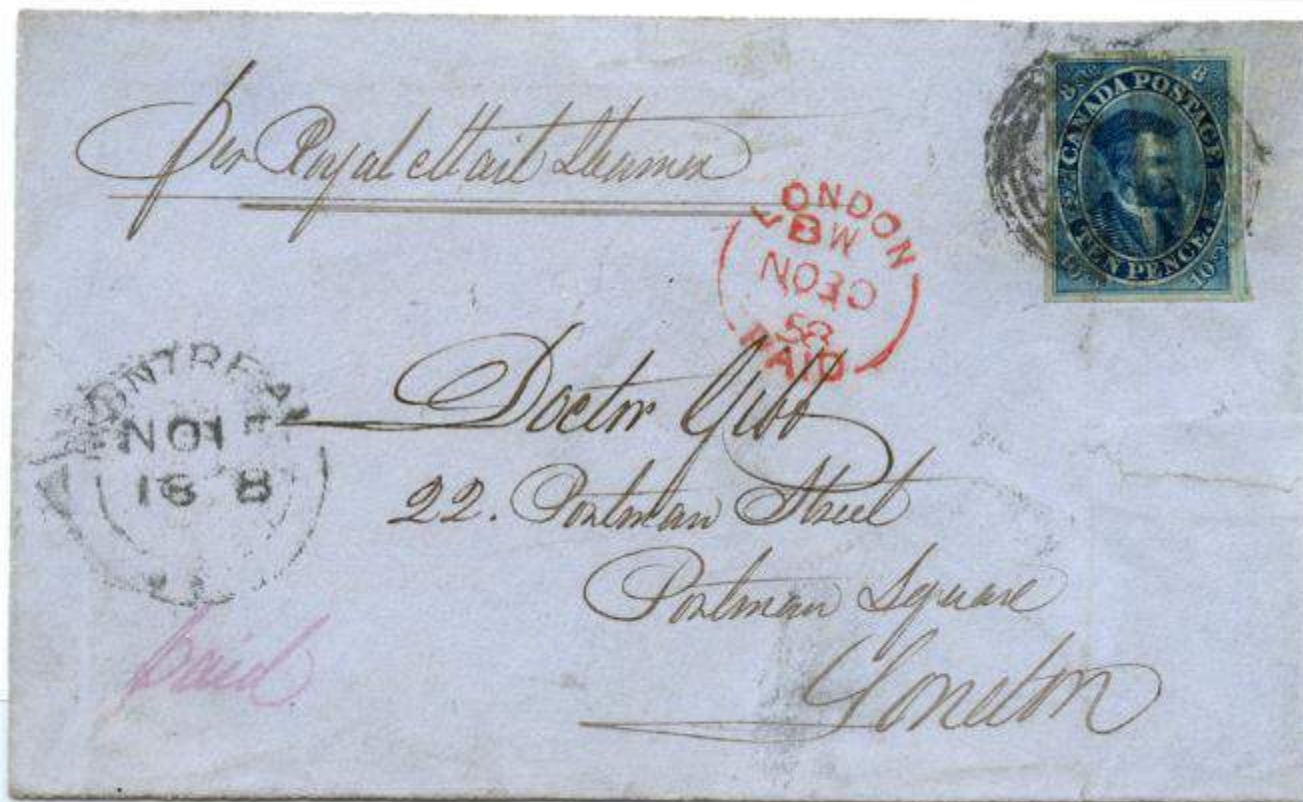 Per Royal Mail Steamer
8 CANADA POSTAGE 8
TEN PENCE.
10 10
LONDON
BW
NO30
58
PAID
MONTREAL
NO1
18 8
Doctor Gibb
22. Portman Street
Portman Square
London
paid.